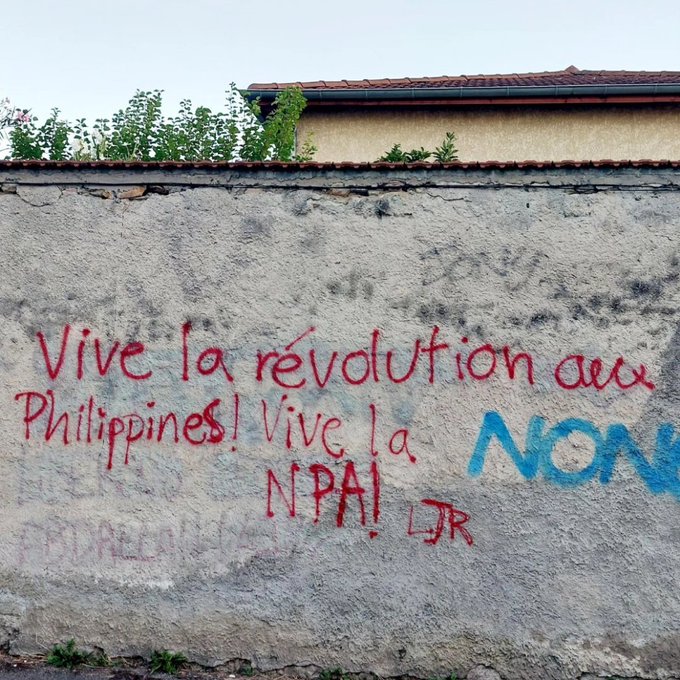 Vive la révolution aux
Philippines! Vive la
NPA! LJR
NON